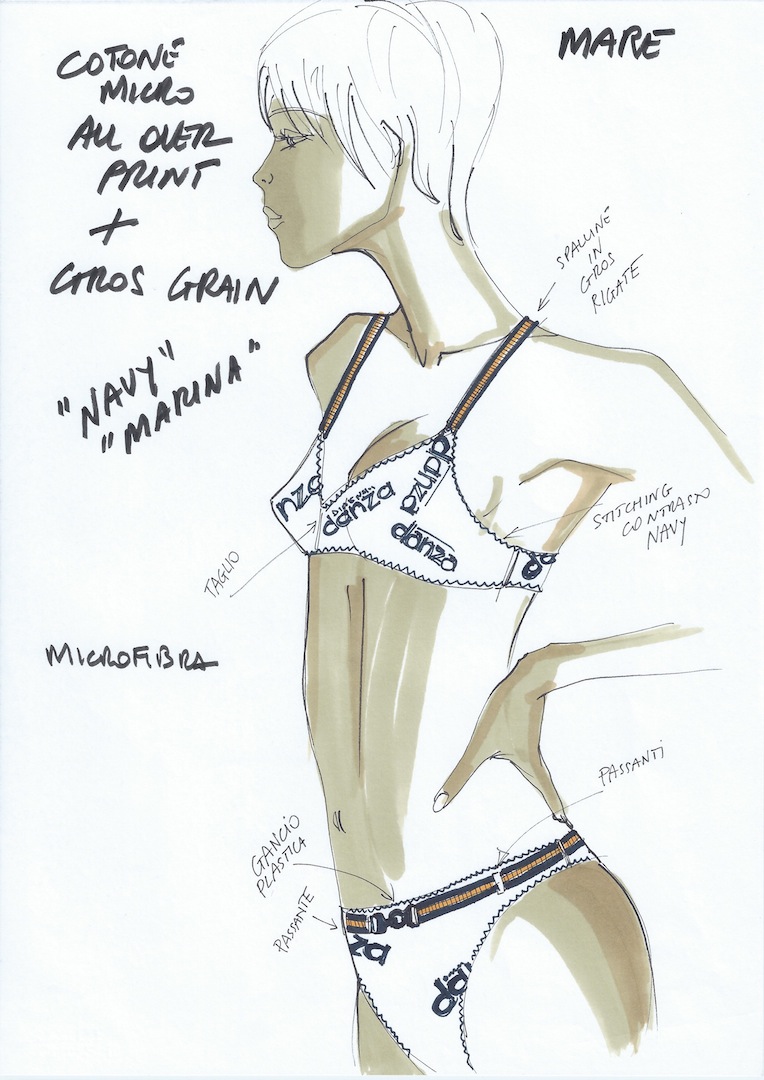 COTONE
MICRO
ALL OVER
PRINT
+
GROS GRAIN
"NAVY"
"MARINA"
MARE
SPALLINE
IN
GROS
RIGATE
nza
DIMENSIONE
danza
danza
danza
da
STITCHING
CONTRASTO
NAVY
TAGLIO
MICROFIBRA
PASSANTI
GANCIO
PLASTICA
PASSANTE
za
dimen
da